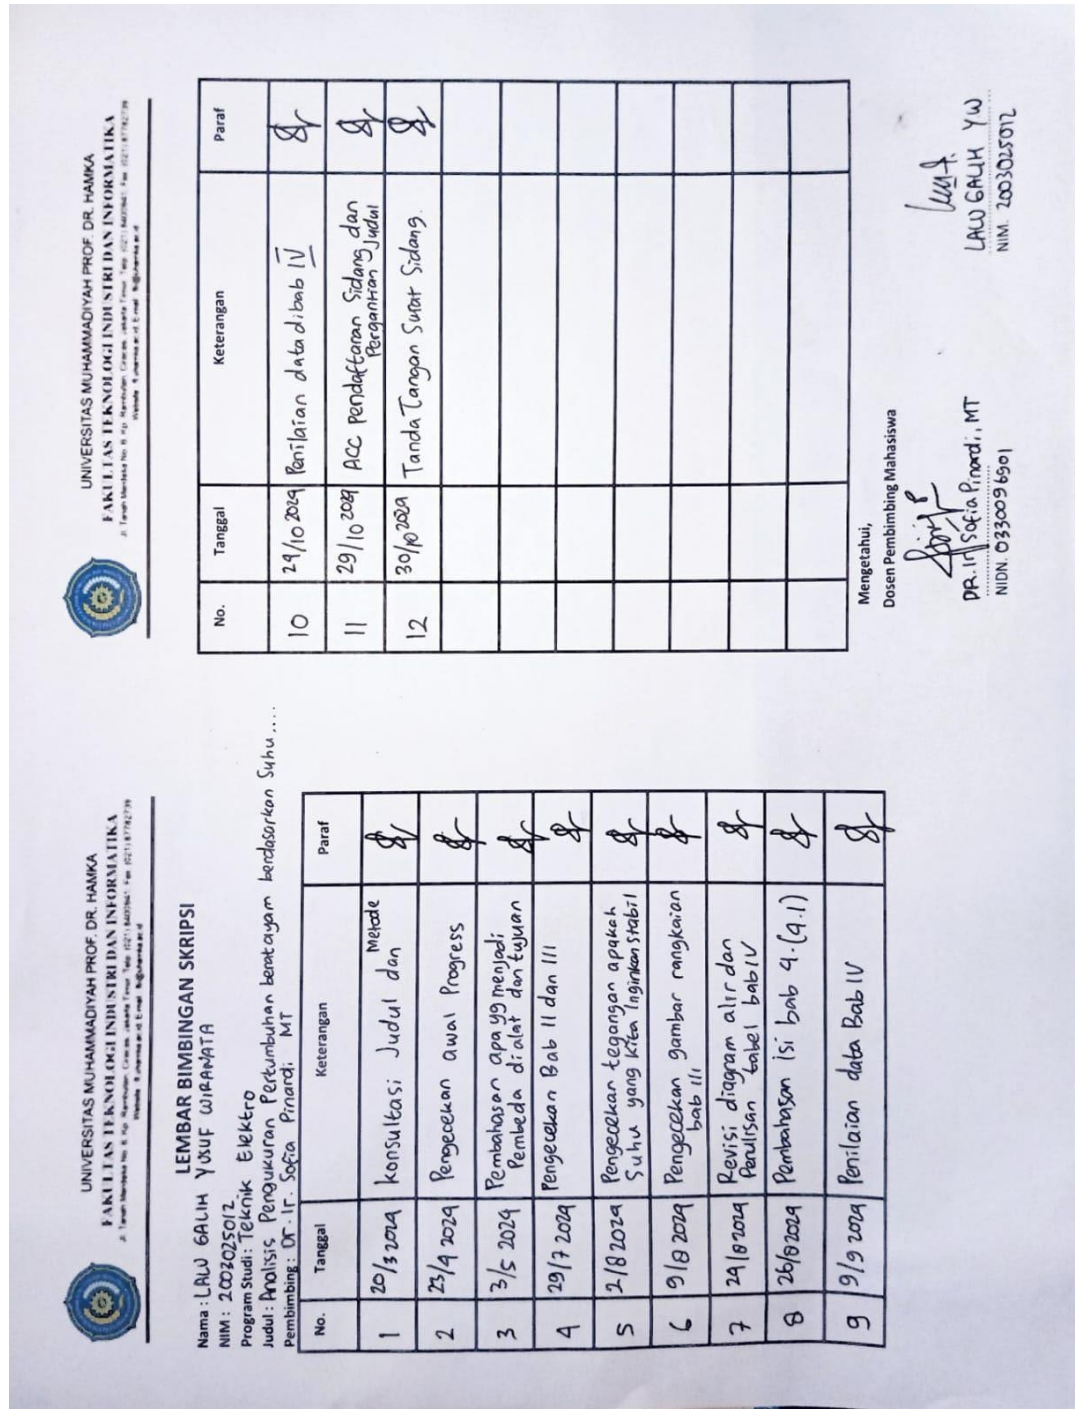 UNIVERSITAS MUHAMMADIYAH PROF. DR. HAMKA
FAKULTAS TEKNOLOGI INDUSTRI DAN INFORMATIKA
LEMBAR BIMBINGAN SKRIPSI
Nama : LALU GALIH YUSUF WIRANATA
NIM : 2003025012
Program Studi : Teknik Elektro
Judul : Analisis Pengukuran Pertumbuhan berat ayam berdasarkan Suhu ....
Pembimbing : Dr. Ir. Sofia Pinardi MT
No. Tanggal Keterangan Paraf
1 20/3 2024 Konsultasi Judul dan Metode
2 23/4 2024 Pengecekan awal Progress
3 3/5 2024 Pembahasan apa yg menjadi
Pembeda di alat dan tujuan
4 29/7 2024 Pengecekan Bab II dan III
5 2/8 2024 Pengecekan tegangan apakah
Suhu yang kita Inginkan stabil
6 9/8 2024 Pengecekan gambar rangkaian
bab III
7 24/8 2024 Revisi diagram alir dan
Penulisan tabel bab IV
8 26/8 2024 Pembahasan isi bab 4. (4.1)
9 9/9 2024 Penilaian data Bab IV
UNIVERSITAS MUHAMMADIYAH PROF. DR. HAMKA
FAKULTAS TEKNOLOGI INDUSTRI DAN INFORMATIKA
No. Tanggal Keterangan Paraf
10 29/10 2024 Penilaian data dibab IV
11 29/10 2024 ACC pendaftaran Sidang dan
Pergantian Judul
12 30/10 2024 Tanda Tangan Surat Sidang.
Mengetahui,
Dosen Pembimbing Mahasiswa
DR. Ir Sofia Pinardi, MT
NIDN. 0330096901
LALU GALIH YW
NIM. 2003025012